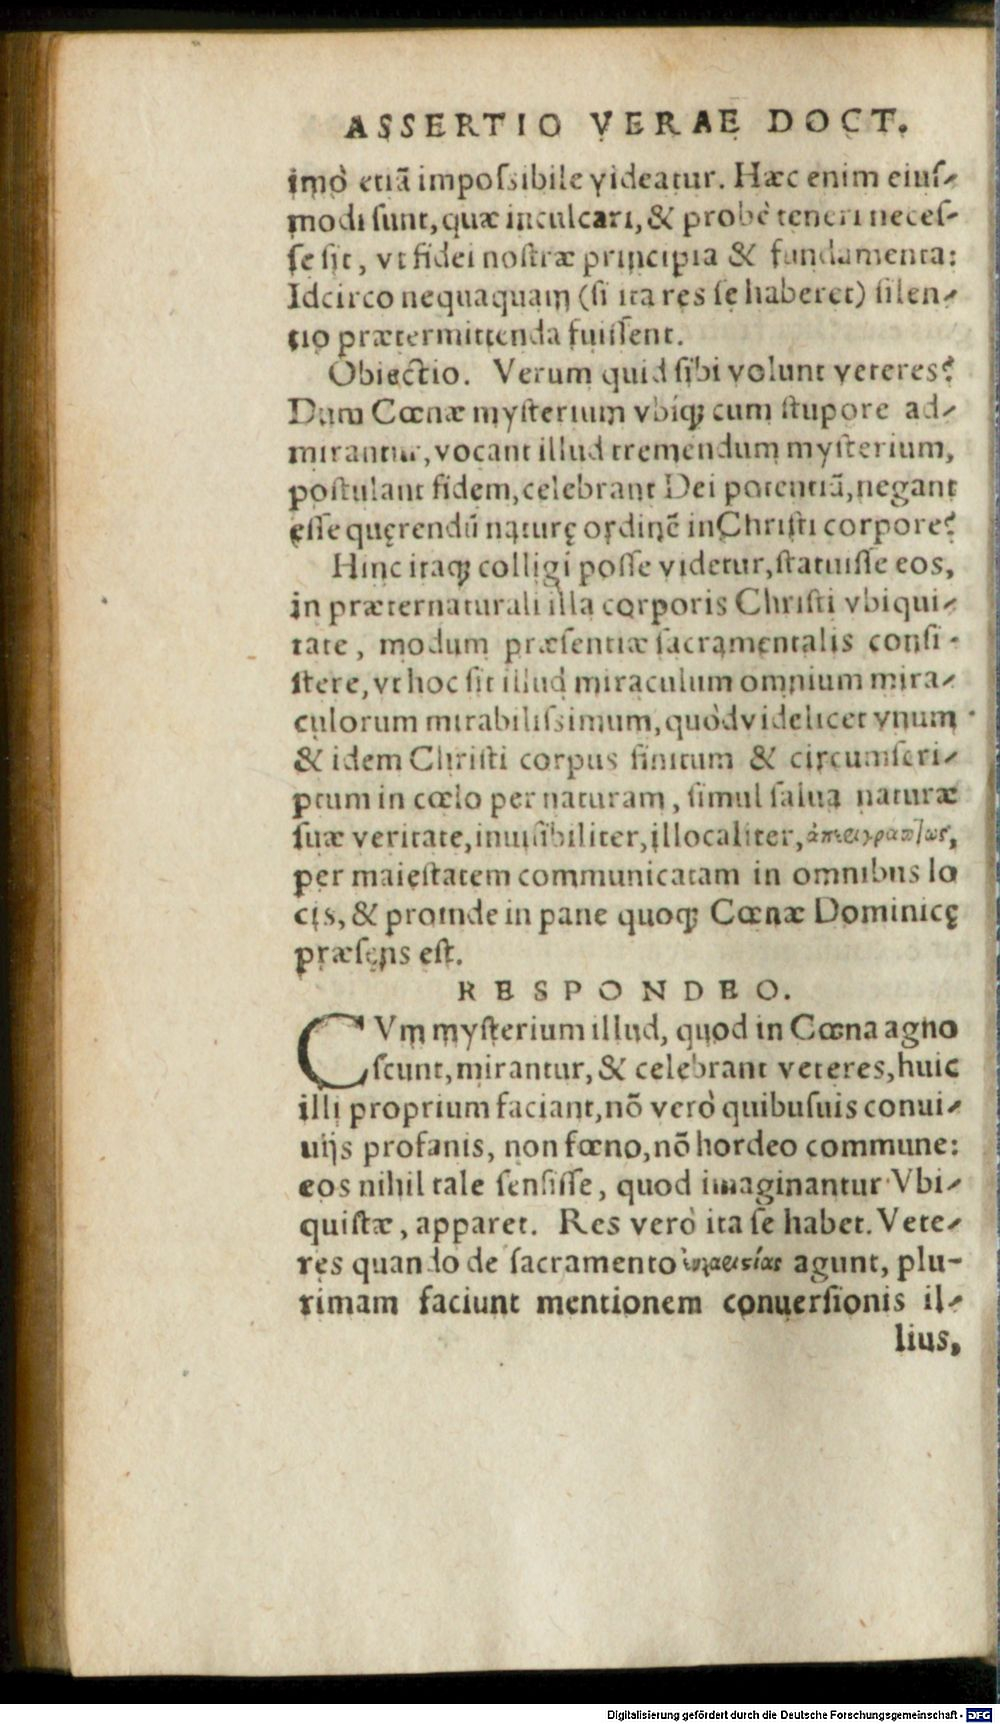 ASSERTIO VERAE DOCT.
imò etiā impoſsibile videatur. Hæc enim eiuſ-
modi ſunt, quæ inculcari, & probè teneri neceſ-
ſe ſit, vt fidei noſtræ principia & fundamenta:
Idcirco nequaquam (ſi ita res ſe haberet) ſilen-
tio prætermittenda fuiſſent.
Obiectio. Verum quid ſibi volunt veteres?
Dum Cœnæ myſterium vbiq; cum ſtupore ad-
mirantur, vocant illud tremendum myſterium,
poſtulant fidem, celebrant Dei potentiā, negant
eſſe quęrendū naturę ordinē in Chriſti corpore?
Hinc itaq; colligi poſſe videtur, ſtatuiſſe eos,
in præternaturali illa corporis Chriſti vbiqui-
tate, modum præſentiæ ſacramentalis conſi-
ſtere, vt hoc ſit illud miraculum omnium mira-
culorum mirabiliſsimum, quòd videlicet vnum
& idem Chriſti corpus finitum & circumſcri-
ptum in cœlo per naturam, ſimul ſalua naturæ
ſuæ veritate, inuiſibiliter, illocaliter,
per maieſtatem communicatam in omnibus lo
cis, & proinde in pane quoq; Cœnæ Dominicę
præſens eſt.
RESPONDEO.
CVm myſterium illud, quod in Cœna agno
ſcunt, mirantur, & celebrant veteres, huic
illi proprium faciant, nō verò quibuſuis conui-
uijs profanis, non fœno, nō hordeo commune:
eos nihil tale ſenſiſſe, quod imaginantur Vbi-
quiſtæ, apparet. Res verò ita ſe habet. Vete-
res quando de ſacramento agunt, plu-
rimam faciunt mentionem conuerſionis il-
lius,
Digitalisierung gefördert durch die Deutsche Forschungsgemeinschaft - DFG